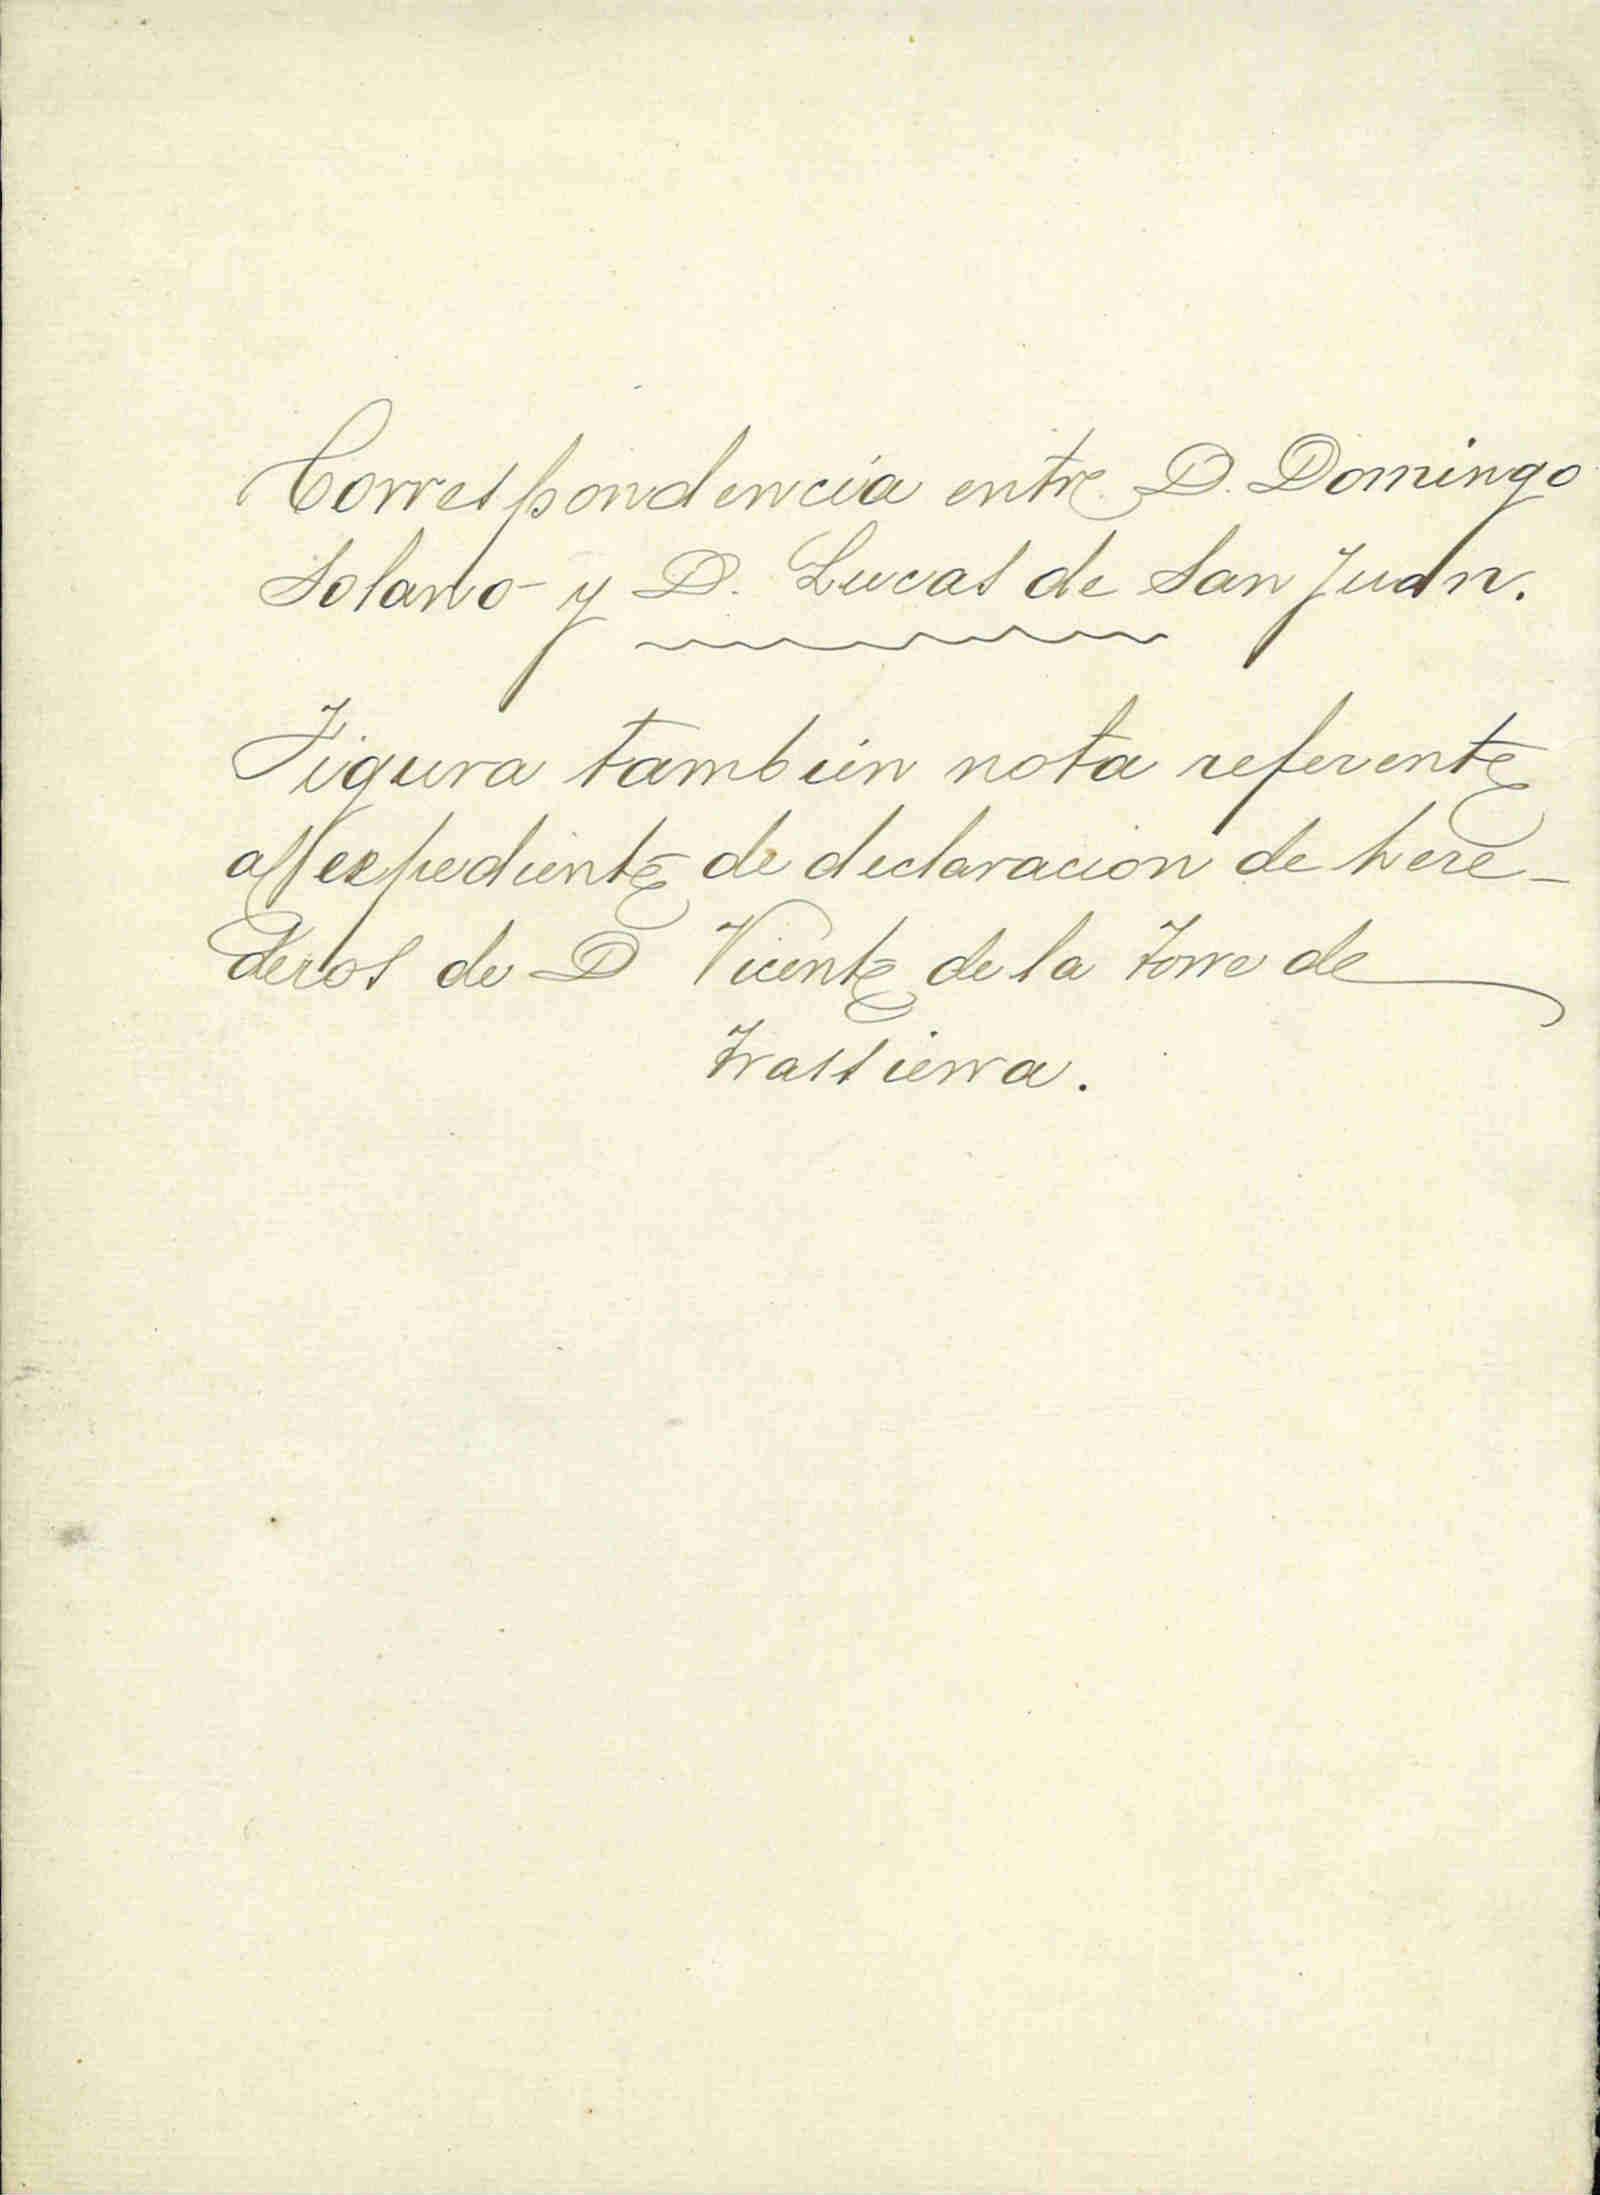 Correspondencia entre D. Domingo
Solano y D. Lucas de San Juan.
Figura tambien nota referente
al expediente de declaracion de here-
deros de D Vicente de la Torre de
Trassierra.